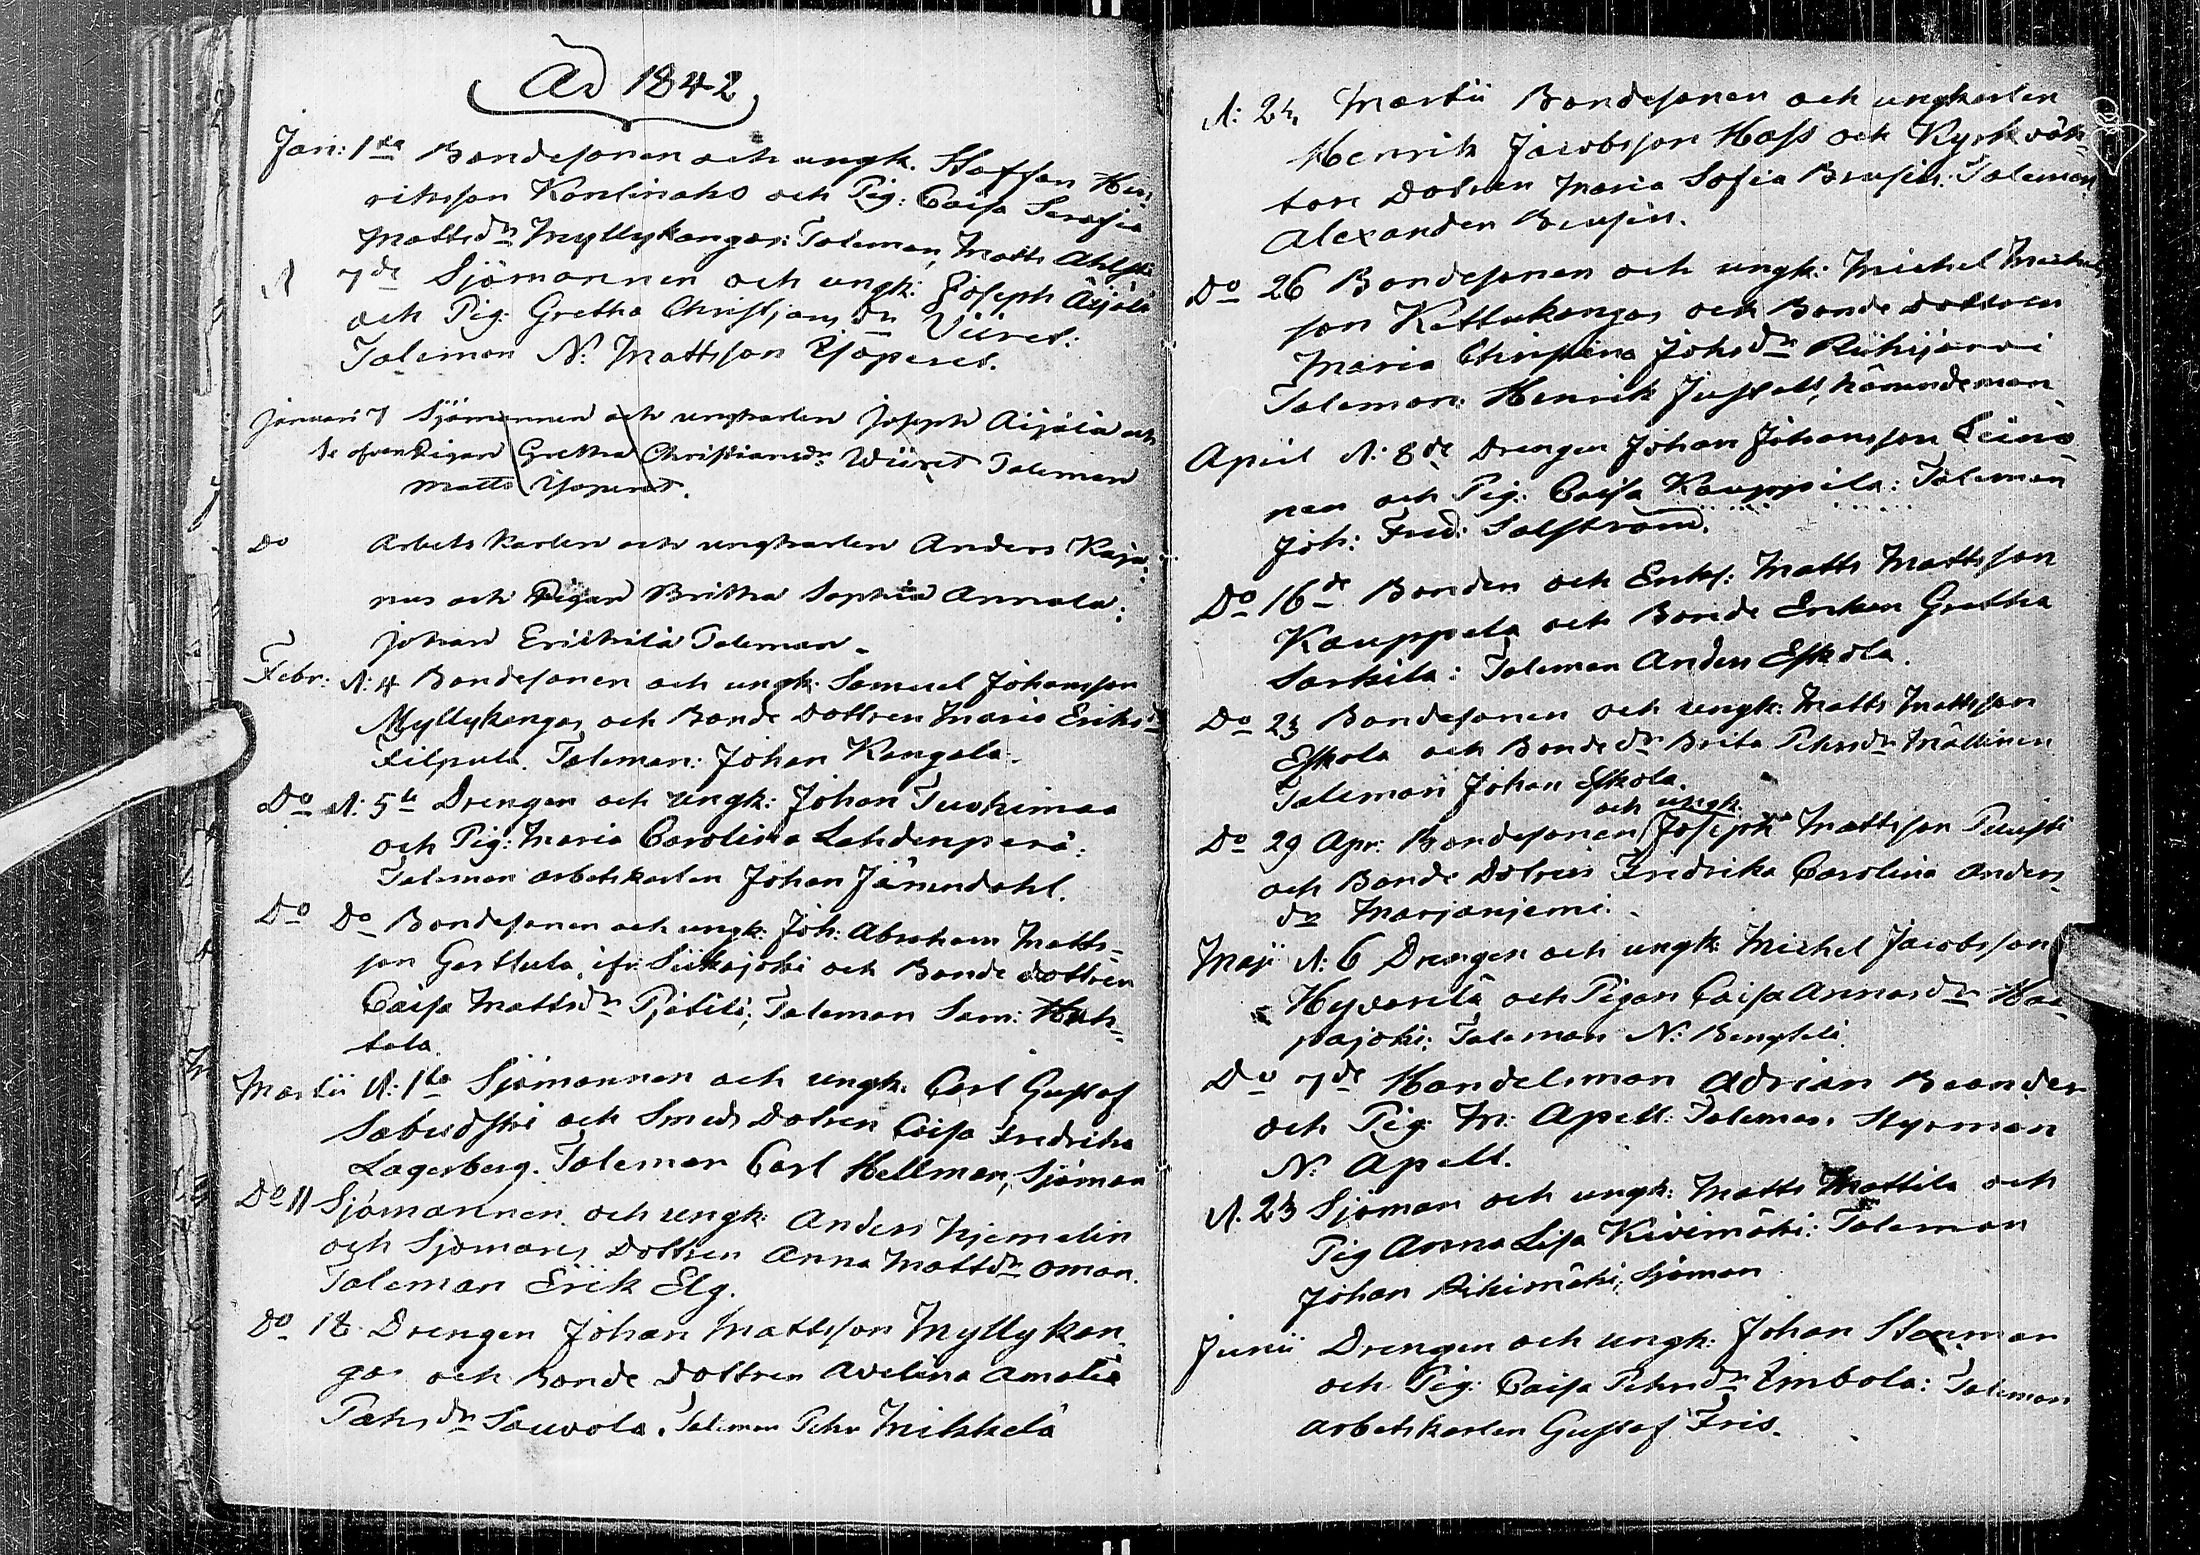 Ad 1842
Jan: 1sta Bondesonen och ungk. Staffan Hen-
riksson Kontinaho och Pig: Caisa Serafia
Mattsdr Myllykangas: Taleman, Matts Ahlst
N 7de Sjömannen och ungk: Joseph Äijälä
och Pig: Gretha Christjansdr Wiiret:
Taleman N: Mattsson Yöperet.
Januari 7 Sjömannen och ungkarlen Joseph Äijälä och
se ofvan Pigan Gretha Christiansdr Wiiret Taleman
Matts Yöperet.
Do Arbets karlen och ungkarlen Anders Kaja-
nus och Pigan Britha Sophia Annala:
Johan Erickilä Taleman.
Febr: N: 4 Bondesonen och ungk: Samuel Johansson
Myllykangas och Bonde Dottren Maria Eriksdr
Filpula. Taleman: Johan Kangala.
Do N: 5te Drengen och ungk: Johan Tuokimaa
och Pig: Maria Carolina Lahdenperä:
Taleman arbetskarlen Johan Järnendahl.
Do Do Bondesonen och ungk: Joh: Abraham Matts-
son Gerttula, ifr. Siikajoki och Bonde dottren
Caisa Mattsdr Pjetilä; Taleman Sam: Huh-
tala.
Martii N: 1sta Sjömannen och ungk: Carl Gustaf
Sabudski och Smeds Dotren Caisa Fredrika
Lagerberg. Taleman Carl Hellman, Sjöman
Do 11 Sjömannen och ungk: Anders Hjemelin
och Sjömans Dottren Anna Mattsdr Oman.
Taleman Erik Elg.
Do 18 Drengen Johan Mattsson Myllykan-
gas och Bonde Dottren Avelina Amalia
Pehrsdr Sauvola. Taleman Pehr Mikkelä
N: 24 Martii Bondesonen och ungkarlen
Henrik Jacobsson Hass och Kyrkväk-
tare Dotren Maria Sofia Brusin: Taleman
Alexander Brusin.
Do 26 Bondesonen och ungk: Michel Michels
son Kettukangas och Bonde dottren
Maria Christina Johsdr Riihijärvi
Taleman: Henrik Jussels, Nämndeman
April N: 8de Drengen Johan Johansson Leino-
nen och Pig: Caisa Kauppila: Taleman
Joh: Fred: Salström.
Do 16de Bonden och Enkf: Matts Mattsson
Kauppila och Bonde Enkan Gretha
Sarkila: Taleman Anders Eskola.
Do 23 Bondesonen och ungk: Matts Mattsson
Eskola och Bondedr Brita Pehrsdr Mällinen
Taleman Johan Eskola.
och ungk.
Do 29 Apr: Bondesonen Joseph Mattsson Puusti
och Bonde Dotren Fredrika Carolina Anders
dr Marjaniemi.
Maji N: 6 Drengen och ungk: Michel Jacobsson
Hyvärilä och Pigan Caisa Annasdr Haa-
pajoki; Taleman N: Bengtili
Do 7de Handelsman Adrian Brander
och Pig: M: Apell: Taleman Styrman
N: Apell.
N: 23 Sjöman och ungk: Matts Mattila och
Pig Anna Lisa Kivimäki: Taleman
Johan Rikimäki, Sjöman
Junii Drengen och ungk: Johan Stenman
och Pig: Caisa PehrsdrImbola: Taleman
arbetskarlen Gustaf Fris.